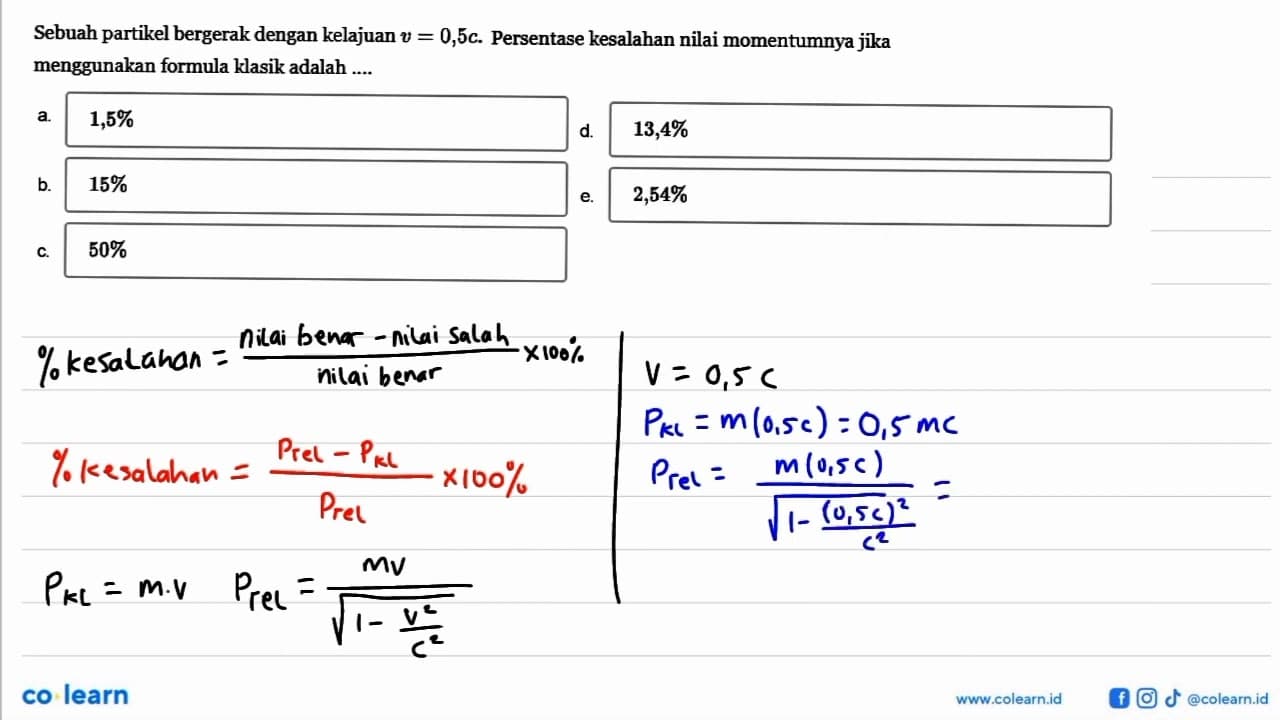 Sebuah partikel bergerak dengan kelajuan v = 0,5c. Persentase kesalahan nilai momentumnya jika
menggunakan formula klasik adalah ....
a. 1,5%
b. 15%
c. 50%
d. 13,4%
e. 2,54%
% kesalahan = nilai benar - nilai salah / nilai benar × 100%
% kesalahan = Prel - Pkl / Prel × 100%
Pkl = m.v Prel = mv / √1 - v² / c²
v = 0,5 c
Pkl = m(0,5c) = 0,5 mc
Prel = m(0,5c) / √1 - (0,5c)² / c² =
co learn
www.colearn.id @colearn.id